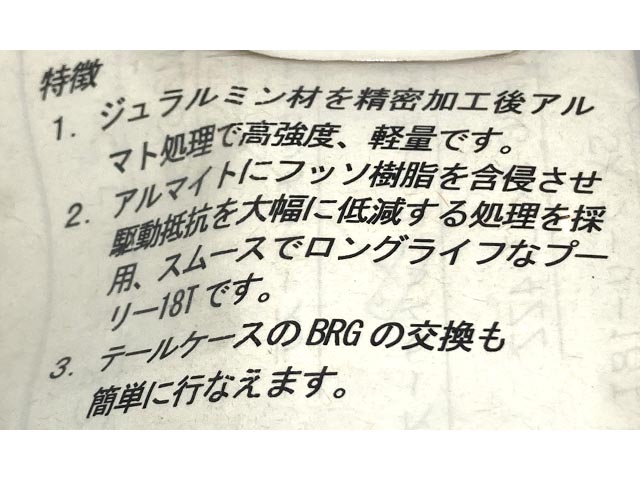 特徴
1. ジュラルミン材を精密加工後アル
マト処理で高強度、軽量です。
2. アルマイトにフッソ樹脂を含侵させ
駆動抵抗を大幅に低減する処理を採
用、スムースでロングライフなプー
リー18Tです。
3. テールケースのBRGの交換も
簡単に行なえます。